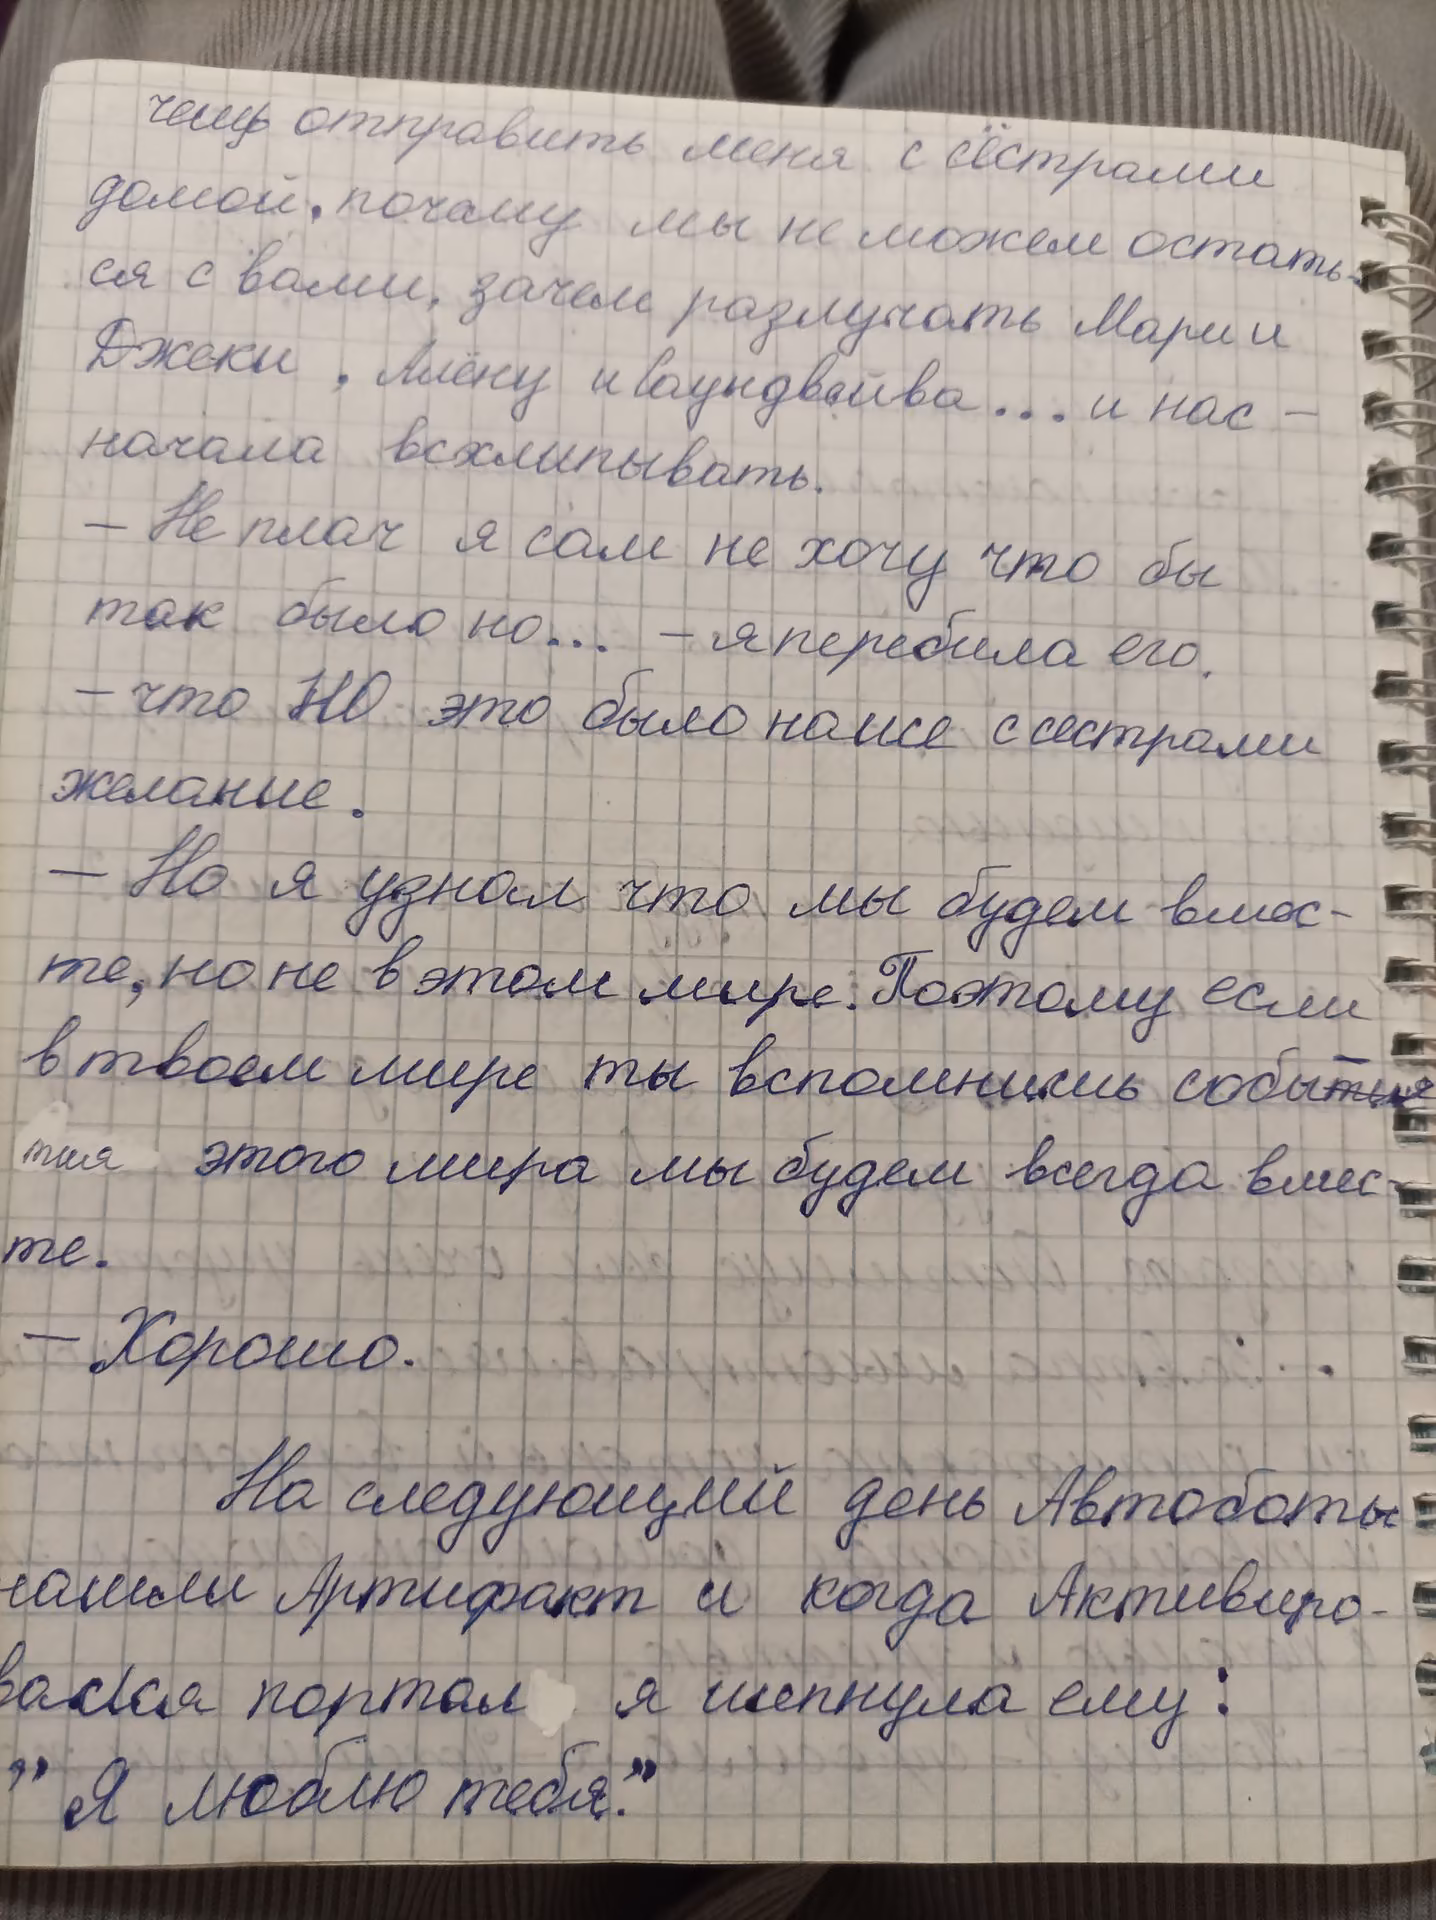 отправить меня с сёстрами
домой, почему мы не можем остать-
ся с вами, зачем разлучать Мари и
Джеки, Алёну и Саундвейва... и нас -
начала всхлипывать.
- Не плач я сам не хочу что бы
так было но... - я перебила его.
- что НО это было наше с сестрами
желание.
- Но я узнал что мы будем вмес-
те, но не в этом мире. Поэтому если
в твоем мире ты вспомнишь собы-
тия этого мира мы будем всегда вмес-
те.
- Хорошо.
На следующий день Автоботы
нашли Артифакт и когда Активиро-
вался портал я шепнула ему:
"Я люблю тебя."